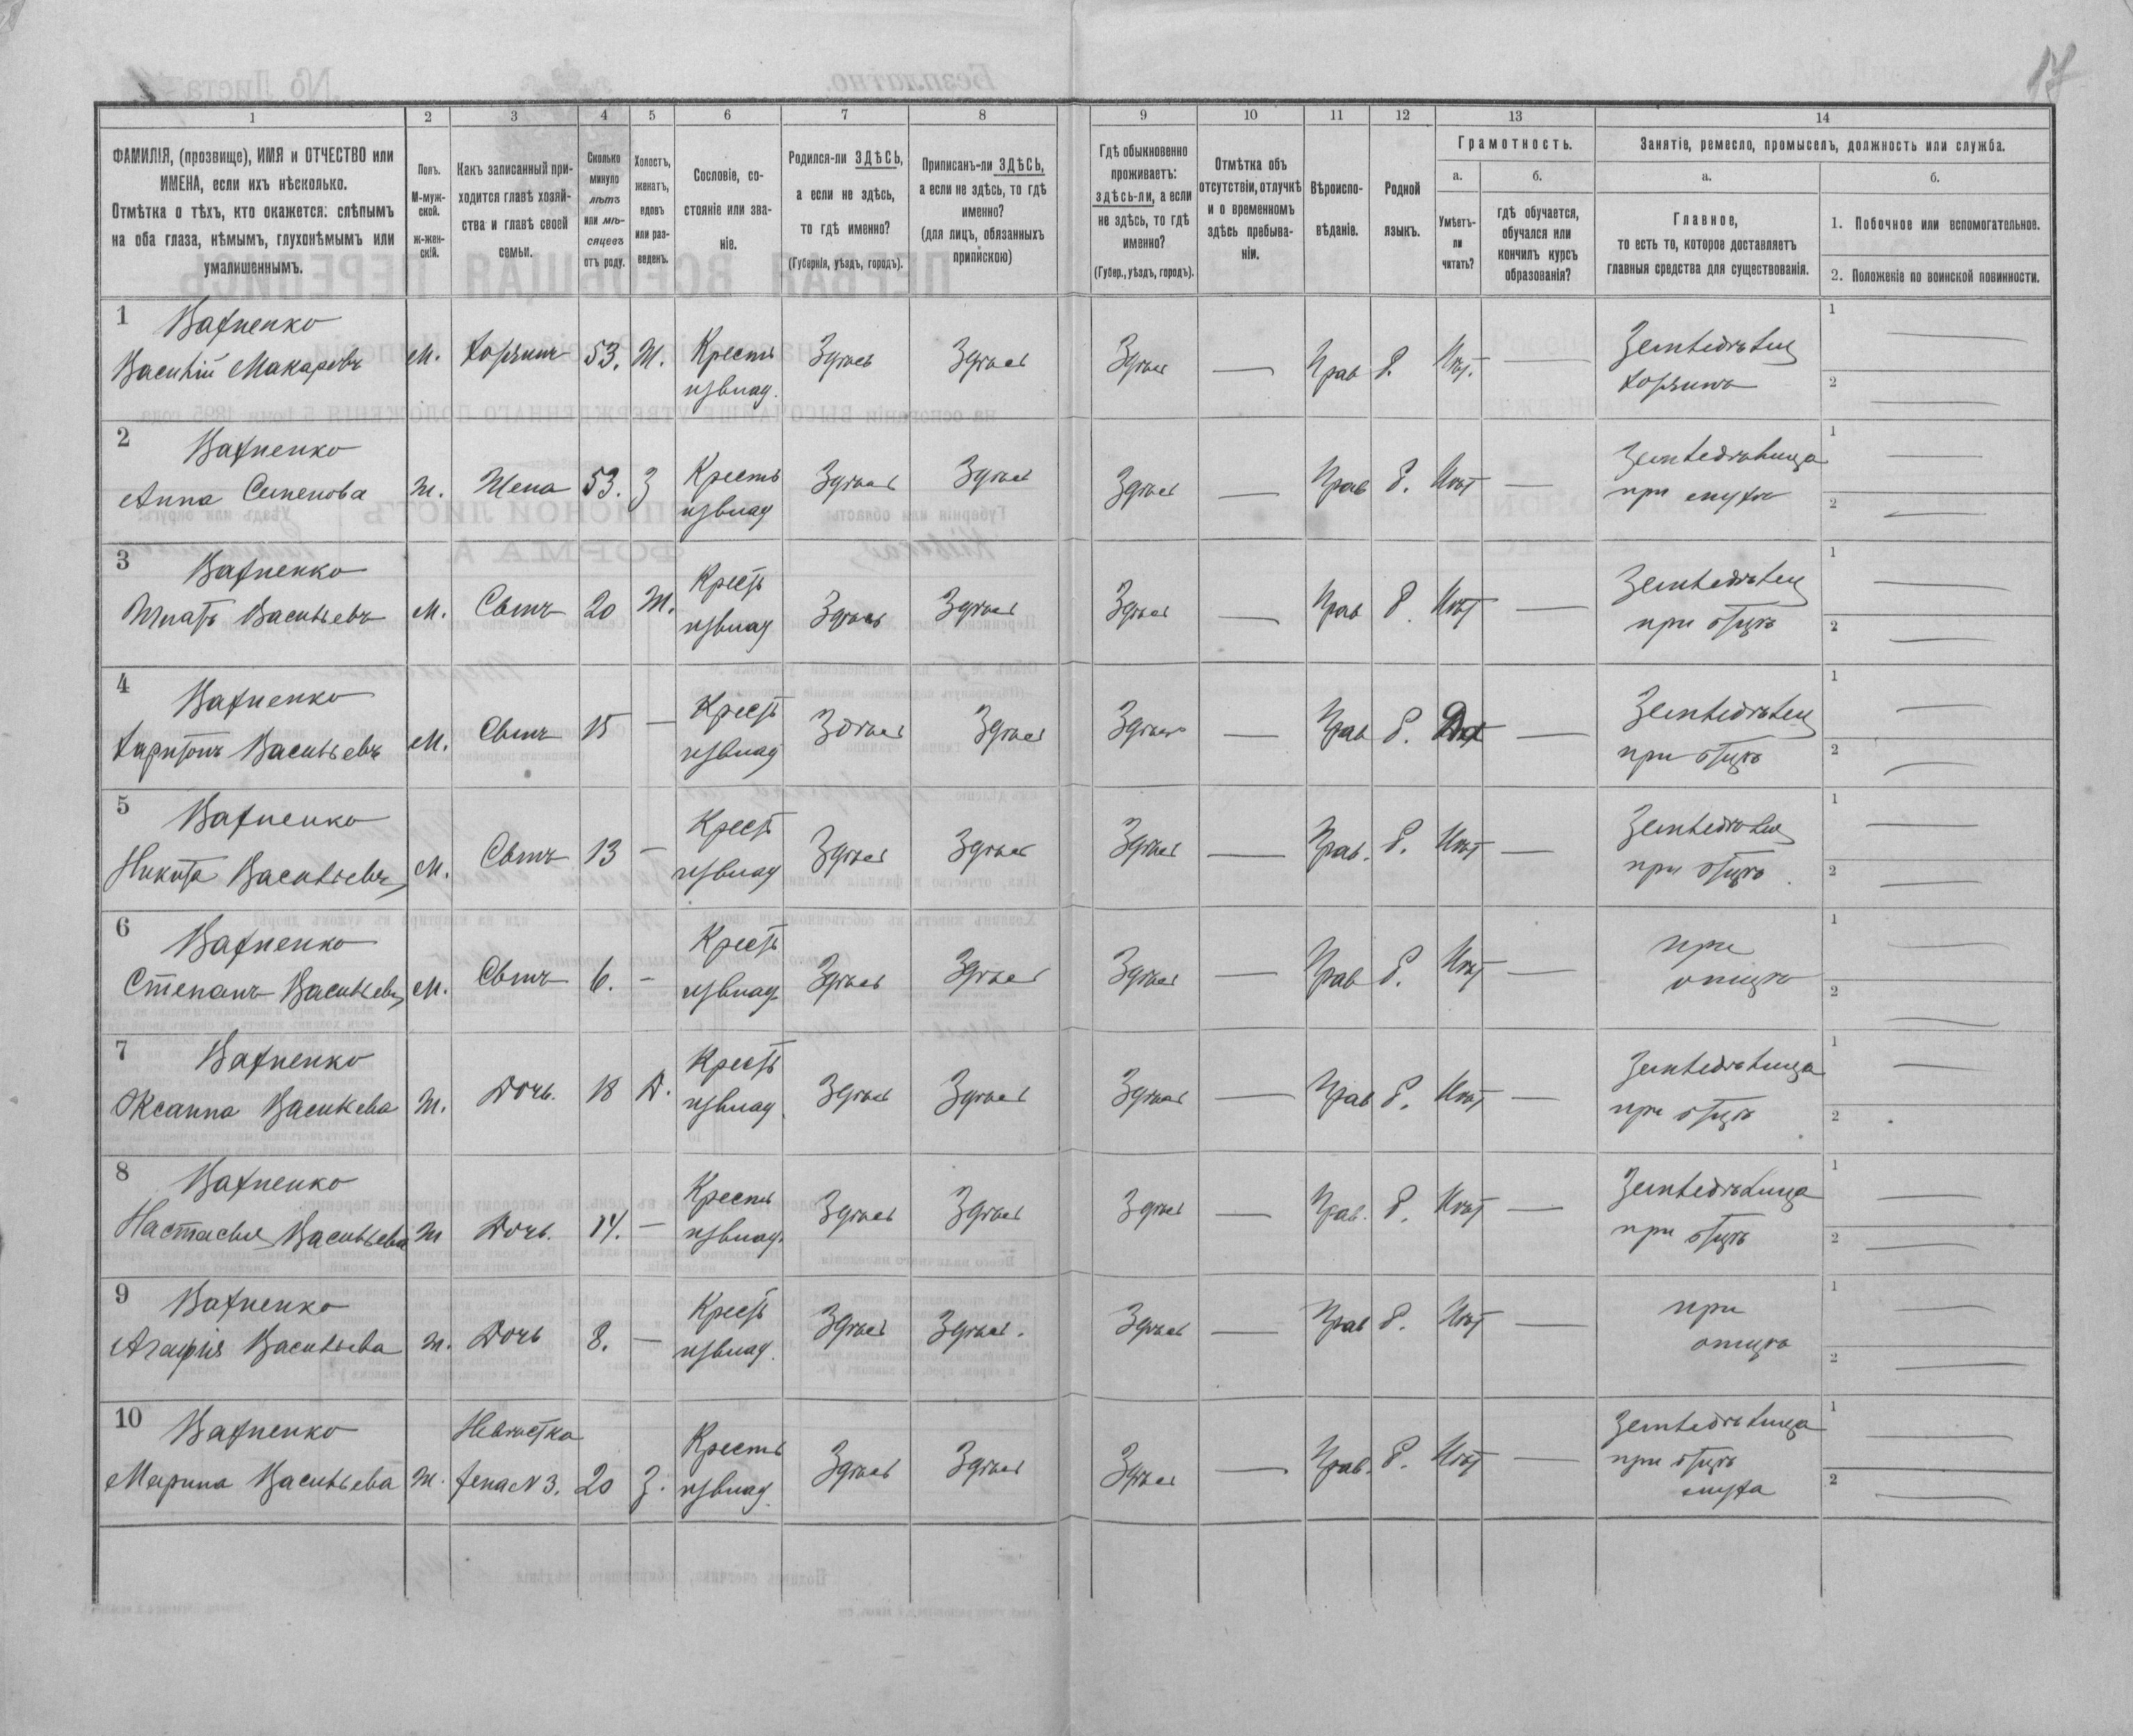 17
1 2 3 4 5 6 7 8 9 10 11 12 13 14
ФАМИЛІЯ, (прозвище), ИМЯ и ОТЧЕСТВО или ИМЕНА, если ихъ нѣсколько.
Отмѣтка о тѣхъ, кто окажется: слѣпымъ на оба глаза, нѣмымъ, глухонѣмымъ или умалишеннымъ.
Полъ. М-мужской. ж-женскій.
Какъ записанный приходится главѣ хозяйства и главѣ своей семьи.
Сколько минуло лѣтъ или мѣсяцевъ отъ роду.
Холостъ, женатъ, вдовъ или разведенъ.
Сословіе, состояніе или званіе.
Родился-ли ЗДѢСЬ, а если не здѣсь, то гдѣ именно?
(Губернія, уѣздъ, городъ).
Приписанъ-ли ЗДѢСЬ, а если не здѣсь, то гдѣ именно?
(для лицъ, обязанныхъ припискою)
Гдѣ обыкновенно проживаетъ: здѣсь-ли, а если не здѣсь, то гдѣ именно?
(Губер., уѣздъ, городъ).
Отмѣтка объ отсутствіи, отлучкѣ и о временномъ здѣсь пребываніи.
Вѣроисповѣданіе.
Родной языкъ.
Грамотность.
а. Умѣетъ-ли читать?
б. гдѣ обучается, обучался или кончилъ курсъ образованія?
Занятіе, ремесло, промыселъ, должность или служба.
а. Главное, то есть то, которое доставляетъ главныя средства для существованія.
б.
1. Побочное или вспомогательное.
2. Положеніе по воинской повинности.
1 Вахненко
Василій Макаровъ М. Хозяинъ 53. Ж. Крестъ изъ влад. Здѣсь Здѣсь Здѣсь — Прав Р. Нѣт. — Земледѣлец хозяинъ 1 — 2 —
2 Вахненко
Анна Семенова Ж. Жена 53. З Крестъ изъ влад Здѣсь Здѣсь Здѣсь — Прав Р. Нѣт — Земледѣлица при мужѣ 1 — 2 —
3 Вахненко
Игнатъ Васильевъ М. Сынъ 20 Ж. Крестъ изъ влад Здѣсь Здѣсь Здѣсь — Прав Р Нѣт — Земледѣлец при отцѣ 1 — 2 —
4 Вахненко
Харитонъ Васильевъ М. Сынъ 15 — Крестъ изъ влад Здѣсь Здѣсь Здѣсь — Прав Р. — Земледѣлец при отцѣ 1 — 2 —
5 Вахненко
Никита Васильевъ М. Сынъ 13 — Крестъ изъ влад Здѣсь Здѣсь Здѣсь — Прав. Р. Нѣт — Земледѣлец при отцѣ 1 — 2 —
6 Вахненко
Степанъ Васильевъ М. Сынъ 6. — Крестъ изъ влад Здѣсь Здѣсь Здѣсь — Прав Р. Нѣт — при отцѣ 1 — 2 —
7 Вахненко
Оксанна Васильева Ж. Дочь. 18 Д. Крестъ изъ влад. Здѣсь Здѣсь Здѣсь — Прав Р. Нѣт — Земледѣлица при отцѣ 1 — 2
8 Вахненко
Настасья Васильева Ж Дочь. 14. — Крестъ изъ влад. Здѣсь Здѣсь Здѣсь — Прав. Р. Нѣт — Земледѣлица при отцѣ 1 — 2 —
9 Вахненко
Агафія Васильева Ж. Дочь 8. — Крестъ изъ влад. Здѣсь Здѣсь. Здѣсь — Прав Р. Нѣт — при отцѣ 1 — 2 —
10 Вахненко
Марина Васильева Ж. Невѣстка жена N 3. 20 З. Крестъ изъ влад. Здѣсь Здѣсь Здѣсь — Прав. Р. Нѣт — Земледѣлица при отцѣ мужа 1 — 2 —